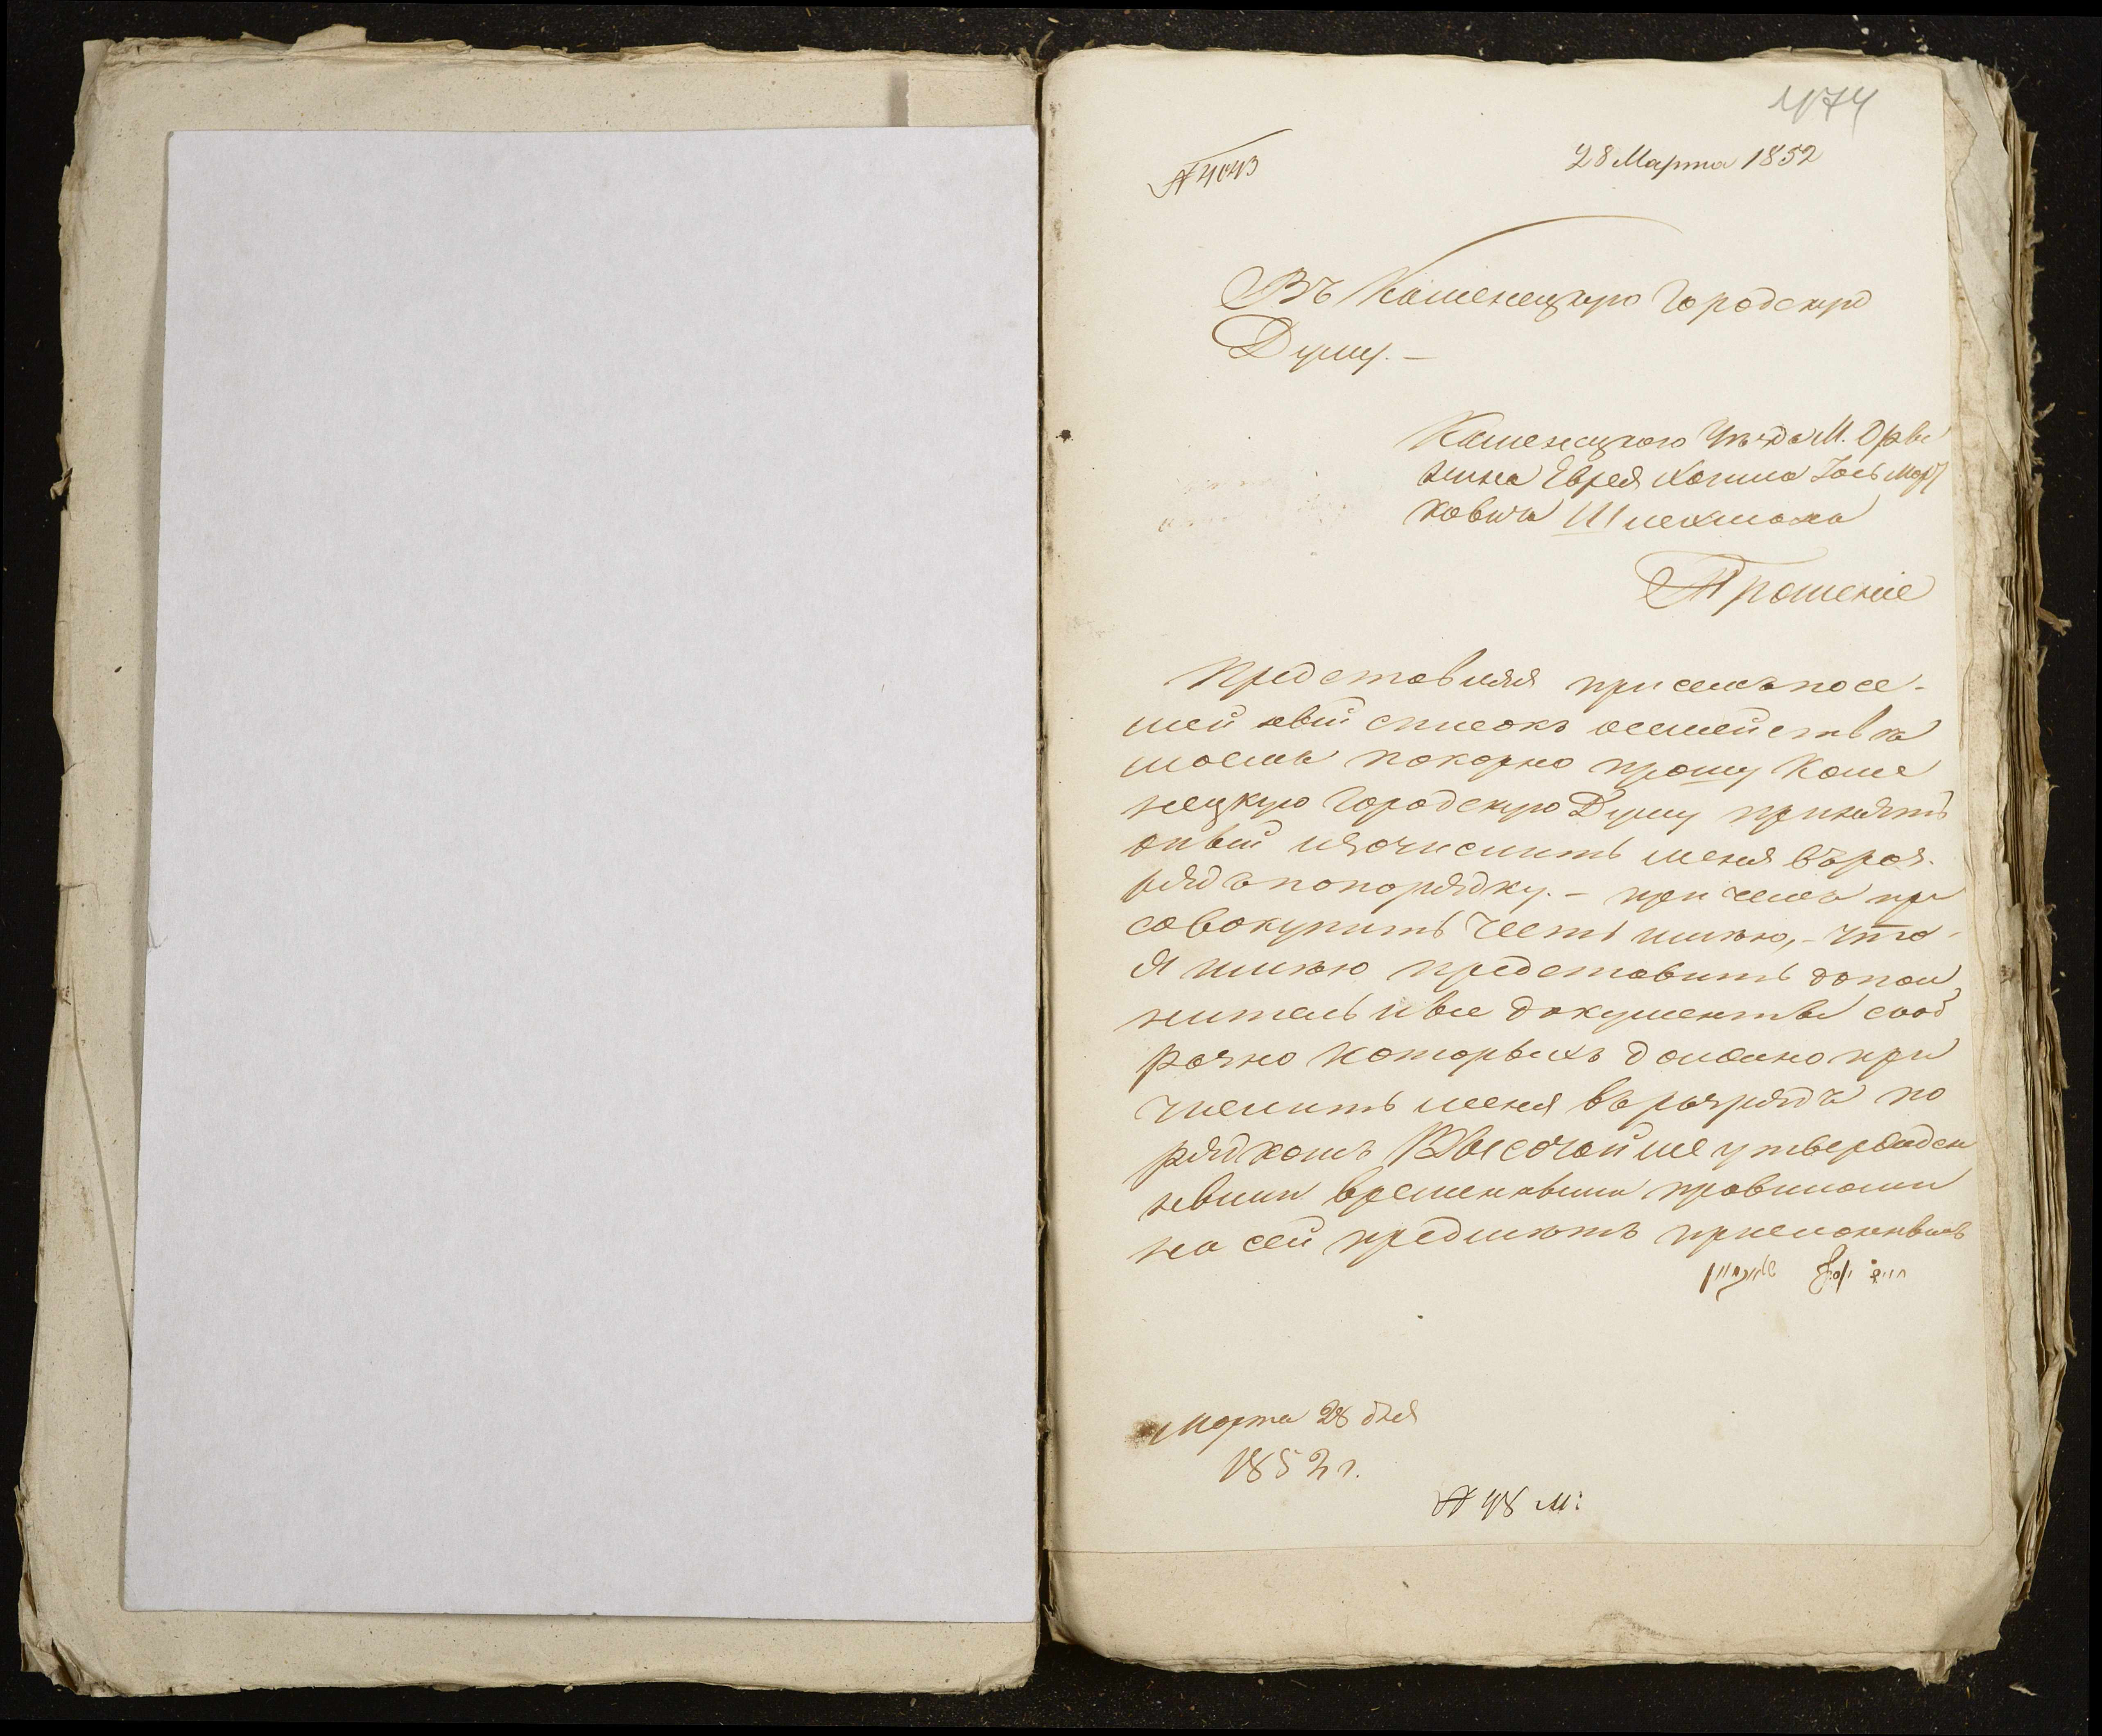 474
№ 4043
28 Марта 1852
Въ Каменецкую Городскую
Думу. —
Каменецкого Уѣзда М. Оры
нина Еврея Хаима Іось Мор
ковича Шлехмана
Прошеніе
Представляя при семъ посе-
мейный списокъ о семействѣ
моемъ покорно прошу Каме
нецкую Городскую Думу принять
оный и зачислить меня въ раз-
рядъ по порядку. — при чемъ при
совокупить честь имѣю, — что
я имѣю представить допол
нительные документы сооб
разно которыхъ должно при
числить меня въ разрядъ по
рядкомъ Высочайше утвержден
ными временными правилами
на сей предмѣтъ
חיים יוסף
Марта 28 дня
1852 г.
№ 48 М: